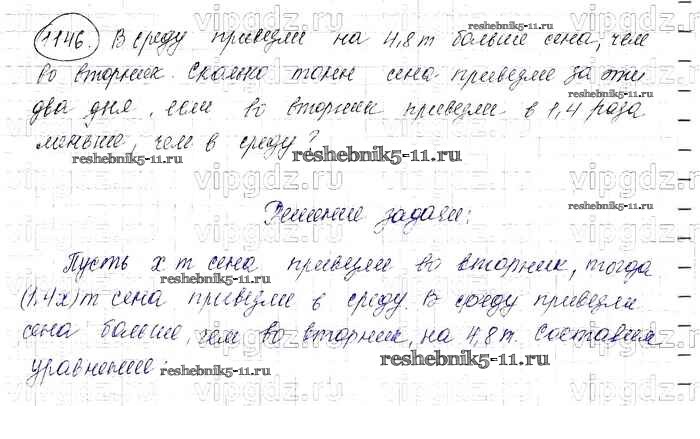 1146. В среду привезли на 4,8 т больше сена, чем
во вторник. Сколько тонн сена привезли за эти
два дня, если во вторник привезли в 1,4 раза
меньше, чем в среду?
Решение задачи:
Пусть x т сена привезли во вторник, тогда
(1,4x) т сена привезли в среду. В среду привезли
сена больше, чем во вторник, на 4,8 т. Составим
уравнение:
reshebnik5-11.ru
reshebnik5-11.ru
reshebnik5-11.ru
reshebnik5-11.ru
reshebnik5-11.ru
reshebnik5-11.ru
reshebnik5-11.ru
reshebnik5-11.ru
vipgdz.ru
vipgdz.ru
vipgdz.ru
vipgdz.ru